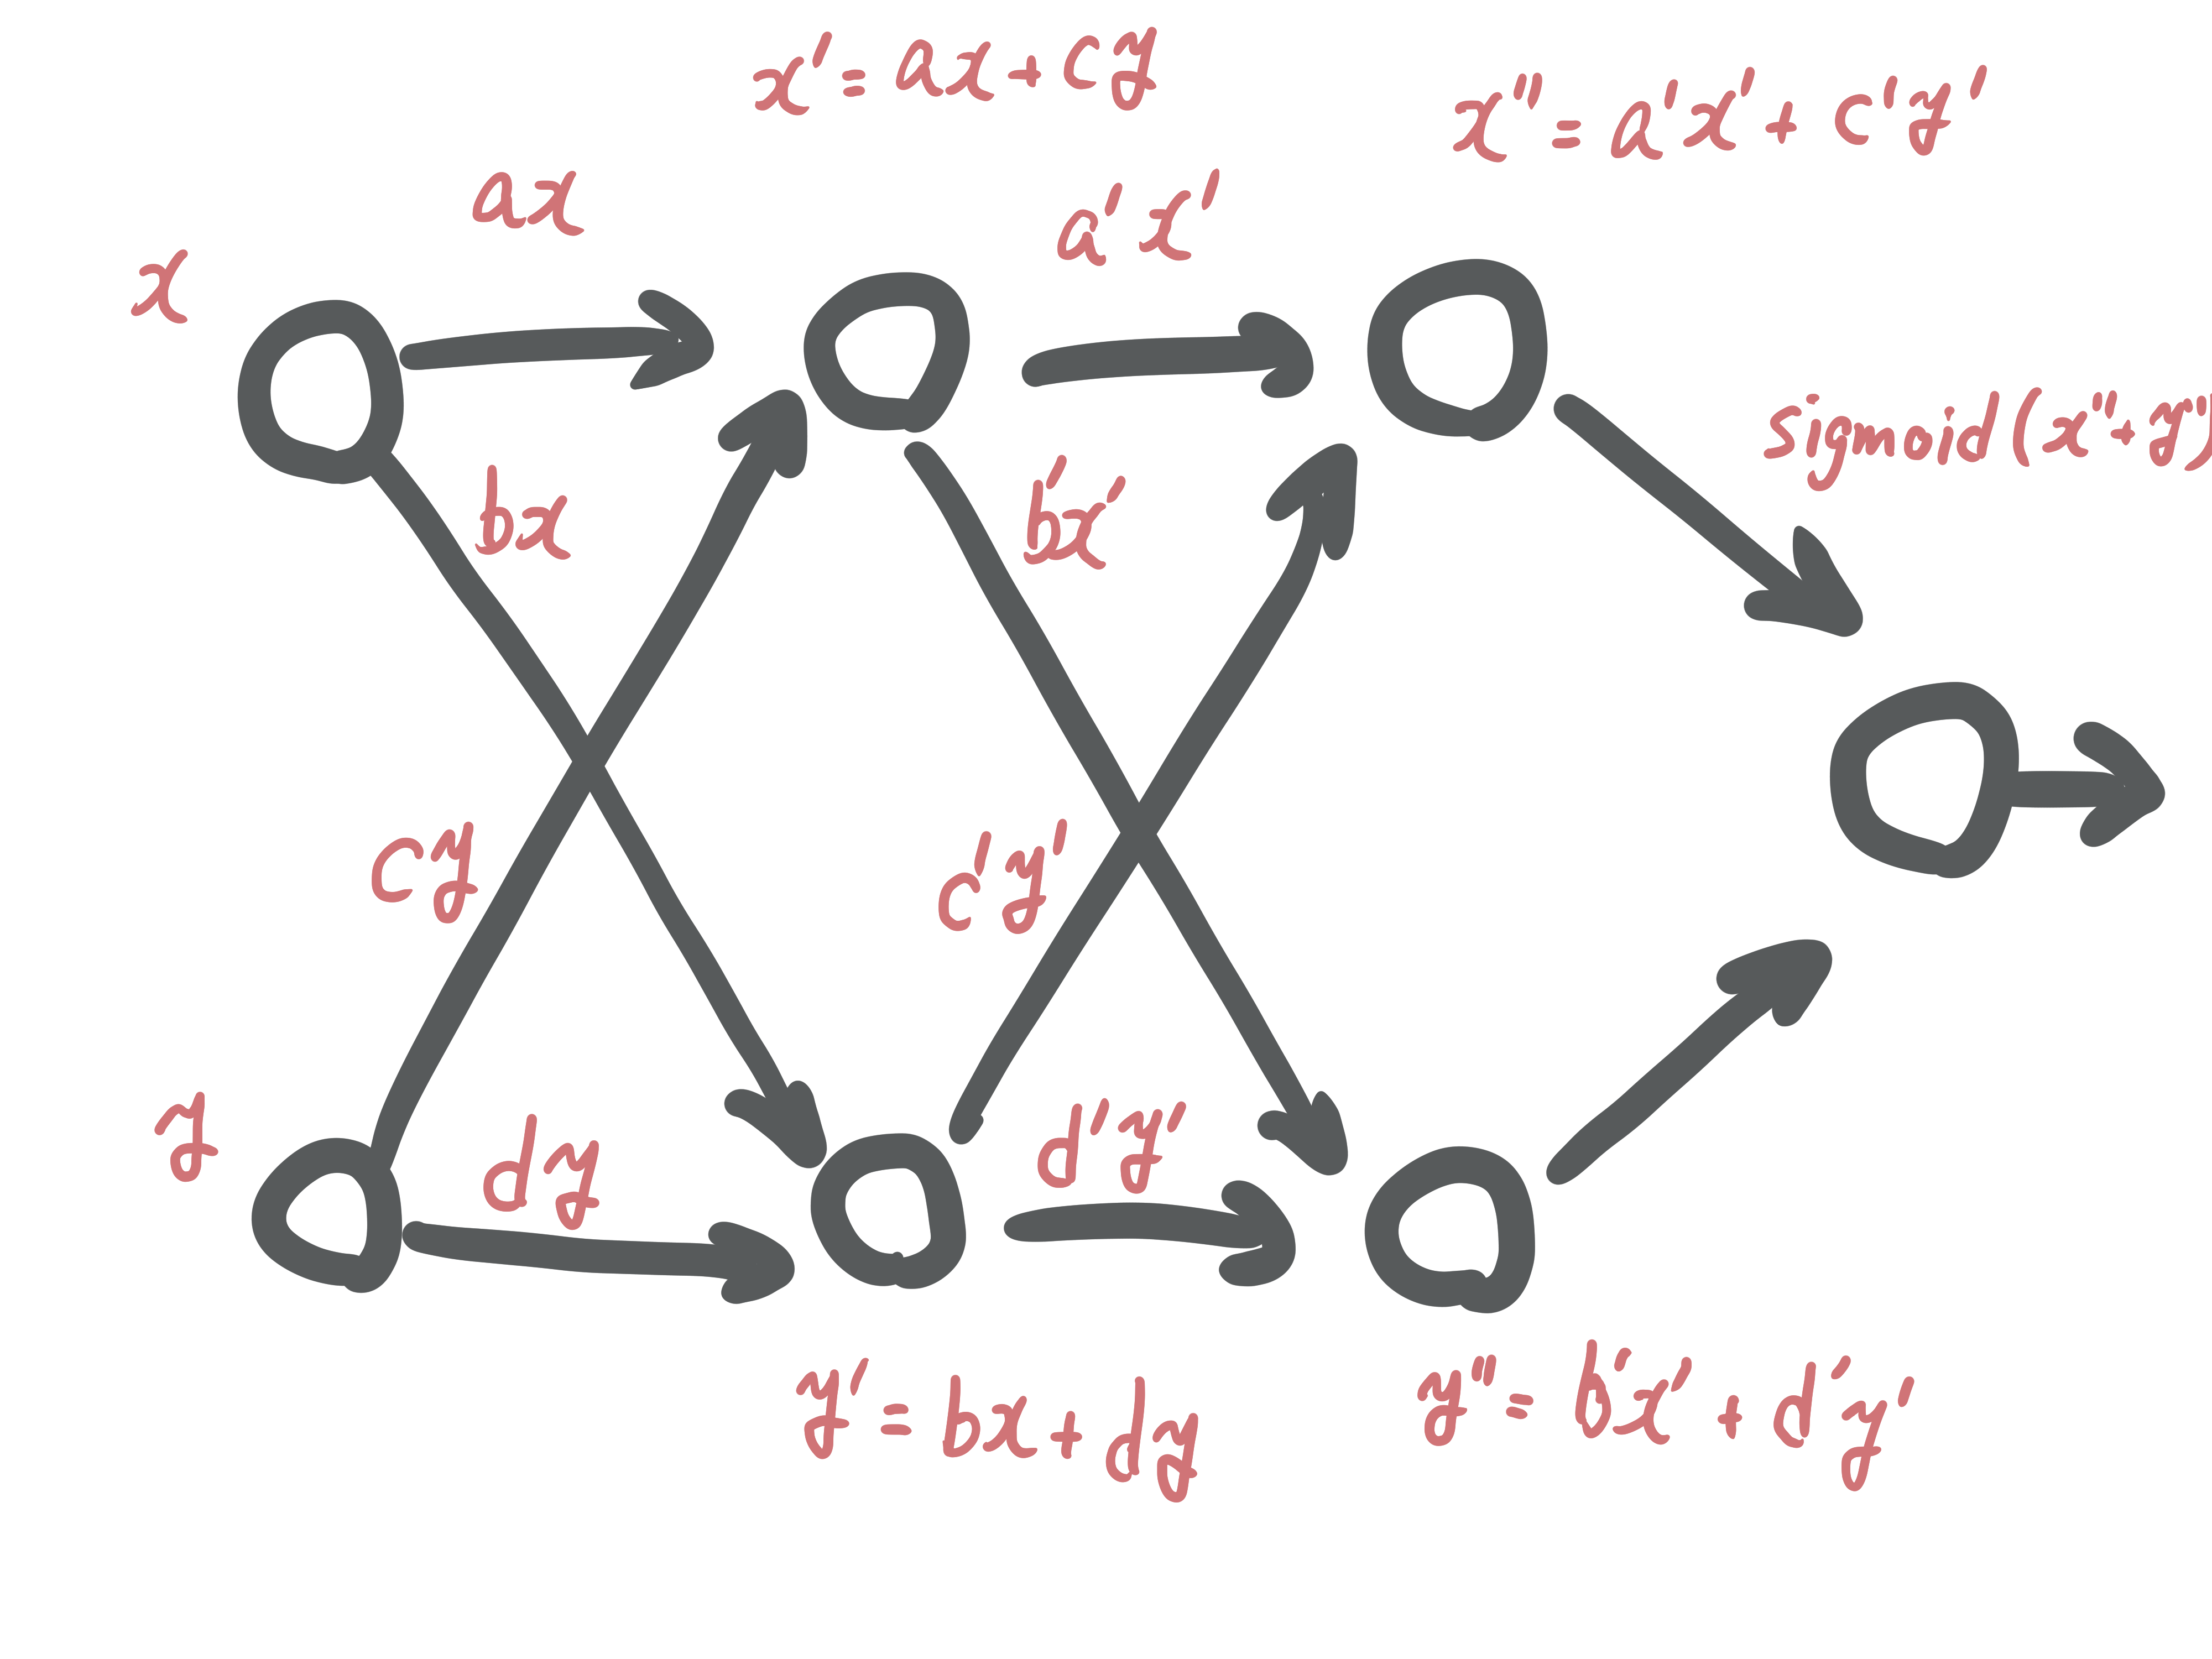 x' = ax + cy
x'' = a'x' + c'y'
ax
a'x'
x
sigmoid(x''+y'')
bx
b'x'
cy
c'y'
y
dy
d'y'
y' = bx + dy
y'' = b'x' + d'y'